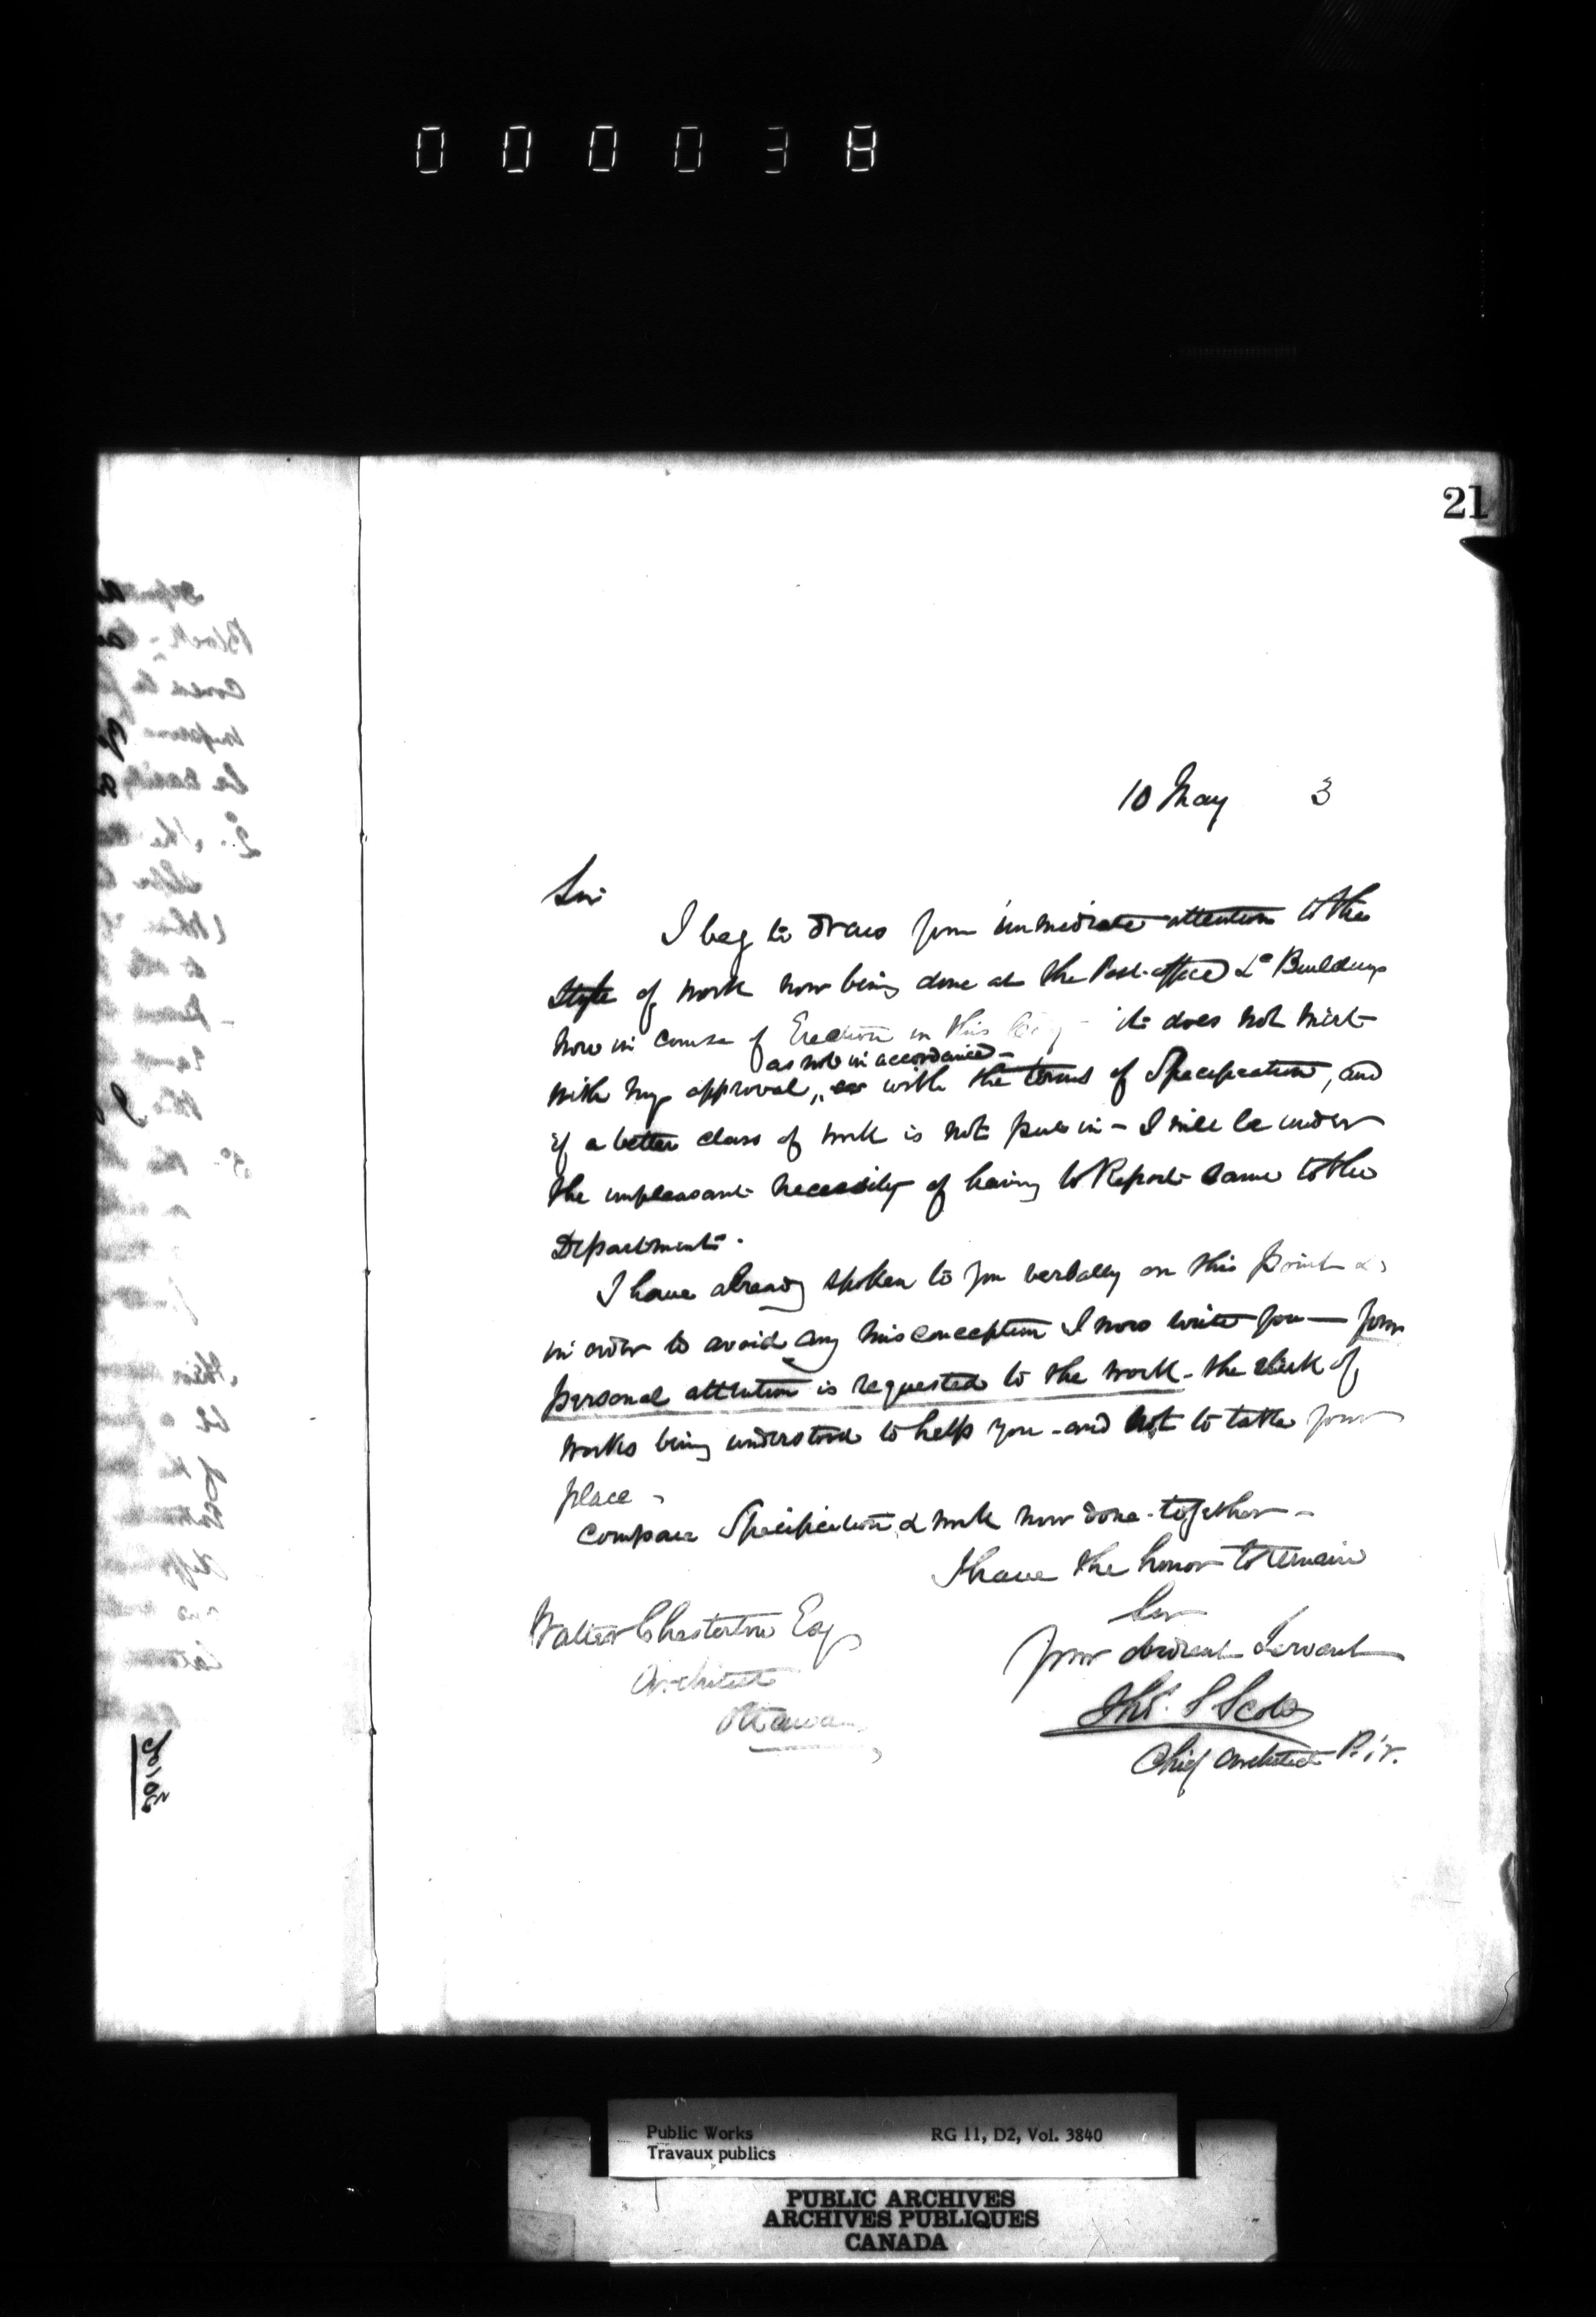 000038
21
10 May 3
Sir
I beg to draw your immediate attention to the
Style of work now being done at the Post-office &c Buildings
now in course of Erection in this City - it does not meet
as not in accordance -
with my approval, with the terms of Specification, and
if a better class of work is not put in - I will be under
the unpleasant necessity of having to Report same to the
Department.
I have already spoken to you verbally on this point &
in order to avoid any misconception I now write you — your
personal attention is requested to the work - the clerk of
works being understood to help you - and not to take your
place -
Compare Specification & work now done - together -
I have the honor to remain
Sir
Your obedient Servant
Thos. S Scott
Chief Architect P.W.
Walter Chesterton Esq
Architect
Ottawa
Public Works
Travaux publics
RG 11, D2, Vol. 3840
PUBLIC ARCHIVES
ARCHIVES PUBLIQUES
CANADA